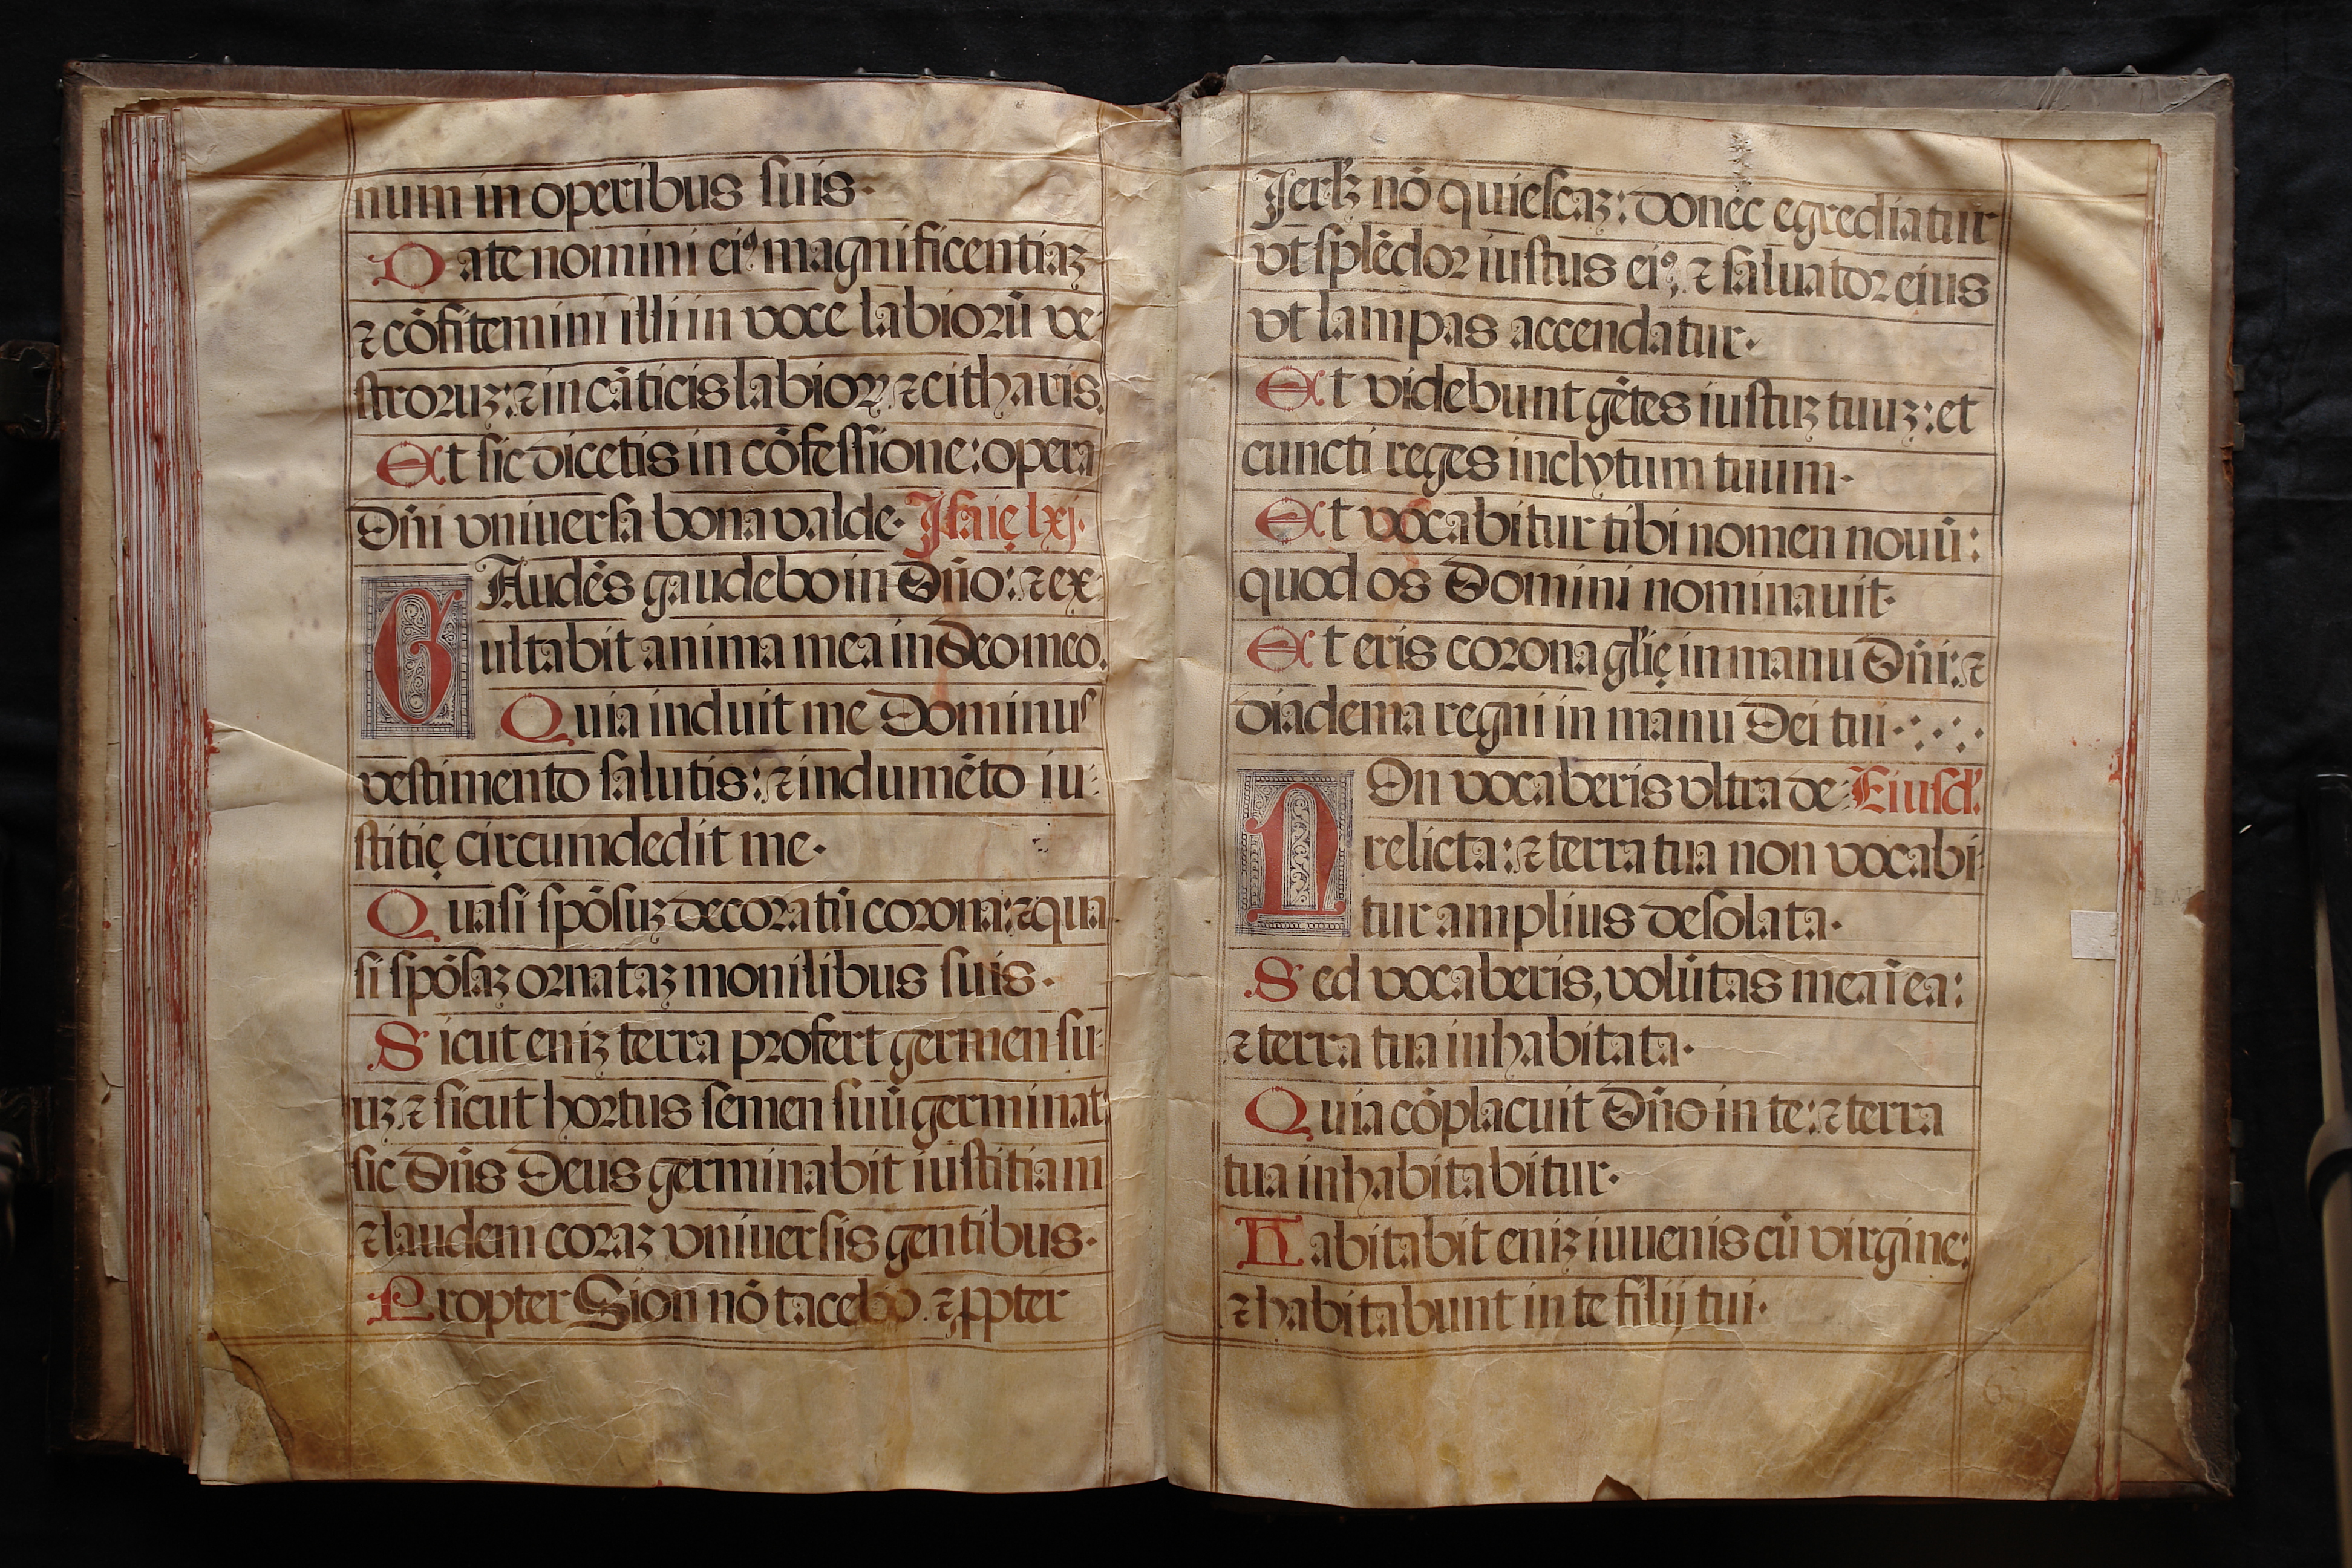 num in operibus suis·
Date nomini eiꝰ magnificentiaz
⁊ cōfitemini illi in voce labiorū ve-
stroruz: ⁊ in cāticis labioꝝ, ⁊ citharis.
Et sic dicetis in cōfessione: opera
Dn̄i vniuersa bona valde· Isaię lxj.
GAudēs gaudebo in Dn̄o: ⁊ ex-
ultabit anima mea in Deo meo.
Quia induit me Dominus
vestimento salutis: ⁊ indumēto iu-
stitię circumdedit me·
Quasi spōsuz decoratū corona: ⁊ qua-
si spōsaz ornataz monilibus suis·
Sicut eniz terra profert germen su-
uz, ⁊ sicut hortus semen suū germinat:
sic Dn̄s Deus germinabit iustitiam
⁊ laudem coraz vniuersis gentibus·
Propter Sion nō tacebo. ⁊ ꝓpter
Ierlꝫ nō quiescaz: donec egrediatur
vt splēdor iustus eiꝰ, ⁊ saluator eius
vt lampas accendatur·
Et videbunt gētes iustuz tuuz: et
cuncti reges inclytum tuum·
Et vocabitur tibi nomen nouū:
quod os Domini nominauit·
Et eris corona gl'ię in manu Dn̄i: ⁊
diadema regni in manu Dei tui·
NOn vocaberis vltra de- Eiusd'.
relicta: ⁊ terra tua non vocabi-
tur amplius desolata·
Sed vocaberis, volūtas mea ī ea:
⁊ terra tua inhabitata·
Quia cōplacuit Dn̄o in te: ⁊ terra
tua inhabitabitur·
Habitabit eniz iuuenis cū virgine:
⁊ habitabunt in te filij tui·